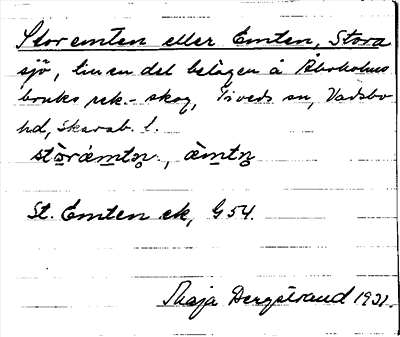 Stor emten eller Emten, Stora
sjö, till en del belägen å Åboholms
bruks rek.-skog, Tiveds sn, Vadsbo
hd, Skarab. l.
St. Emten ek, G 54.
Maja Bergstrand 1931.